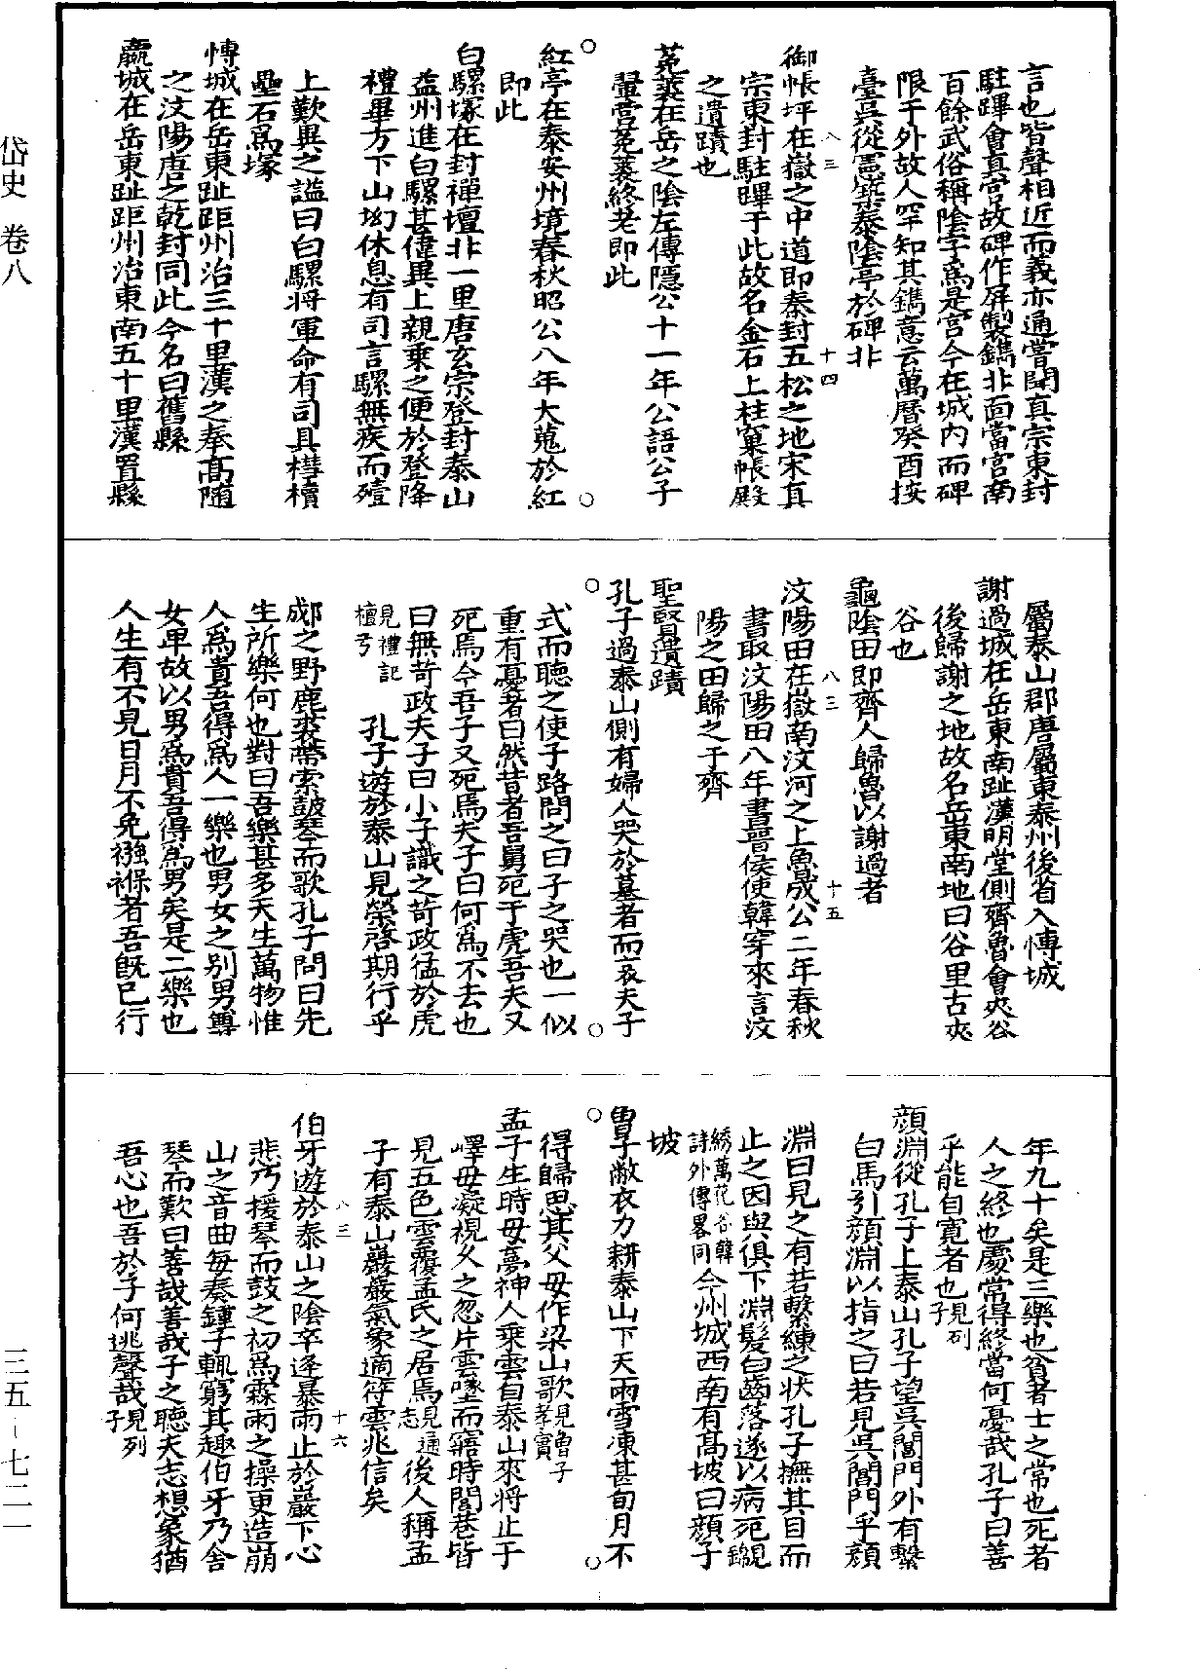 岱史　卷八
言也皆聲相近而義亦通嘗聞真宗東封
駐蹕會真宮故碑作屏製鐫北面當宮南
百餘武俗稱陰字爲是宮今在城内而碑
限于外故人罕知其鐫意云萬曆癸酉按
臺吳從憲築泰陰亭於碑北
八三　十四
御帳坪在嶽之中道即秦封五松之地宋真
宗東封駐蹕于此故名金石上柱窠帳殿
之遺蹟也
菟裘在岳之陰左傳隱公十一年公語公子
翬營菟裘終老即此
紅亭在泰安州境春秋昭公八年大蒐於紅
即此
白騾塚在封禪壇北一里唐玄宗登封泰山
益州進白騾甚偉異上親乘之便於登降
禮畢方下山坳休息有司言騾無疾而殪
上歎異之謚曰白騾將軍命有司具櫘櫝
壘石爲塚
慱城在岳東趾距州治三十里漢之奉髙隨
之汶陽唐之乾封同此今名曰舊縣
嬴城在岳東趾距州冶東南五十里漢置縣
屬泰山郡唐屬東泰州後省入慱城
謝過城在岳東南趾漢明堂側齊魯會夾谷
後歸謝之地故名岳東南地曰谷里古夾
谷也
龜陰田即齊人歸魯以謝過者
八三　十五
汶陽田在嶽南汶河之上魯成公二年春秋
書取汶陽田八年書晉侯使韓穿來言汶
陽之田歸之于齊
聖賢遺蹟
孔子過泰山側有婦人哭於墓者而哀夫子
式而聽之使子路問之曰子之哭也一似
重有憂者曰然昔者吾舅死于虎吾夫又
死焉今吾子又死焉夫子曰何爲不去也
曰無苛政夫子曰小子識之苛政猛於虎
見禮記檀弓　孔子遊於泰山見榮啓期行乎
郕之野鹿裘帶索鼓琴而歌孔子問曰先
生所樂何也對曰吾樂甚多天生萬物惟
人爲貴吾得爲人一樂也男女之别男尊
女卑故以男爲貴吾得爲男矣是二樂也
人生有不見日月不免襁褓者吾旣已行
年九十矣是三樂也貧者士之常也死者
人之終也處常得終當何憂哉孔子曰善
乎能自寬者也見列子
顔淵從孔子上泰山孔子望吳閶門外有繫
白馬引顔淵以指之曰若見吳閶門乎顔
淵曰見之有若繫練之狀孔子撫其目而
止之因與俱下淵髮白齒落遂以病死
綉萬花谷韓詩外傳畧同今州城西南有髙坡曰顔子
坡
曾子敝衣力耕泰山下天雨雪凍甚旬月不
得歸思其父毋作梁山歌見曾子孝實
孟子生時母夢神人乗雲自泰山來將止于
嶧母凝視久之忽片雲墜而寤時閭巷皆
見五色雲覆孟氏之居焉見通志後人稱孟
子有泰山巖巖氣象適符雲兆信矣
八三　十六
伯牙遊於泰山之陰卒逢暴雨止於巖下心
悲乃援琴而鼓之初爲霖雨之操更造崩
山之音曲每奏鍾子輒窮其趣伯牙乃舍
琴而歎曰善哉善哉子之聽夫志想象猶
吾心也吾於子何逃聲哉見列子
三五—七二一